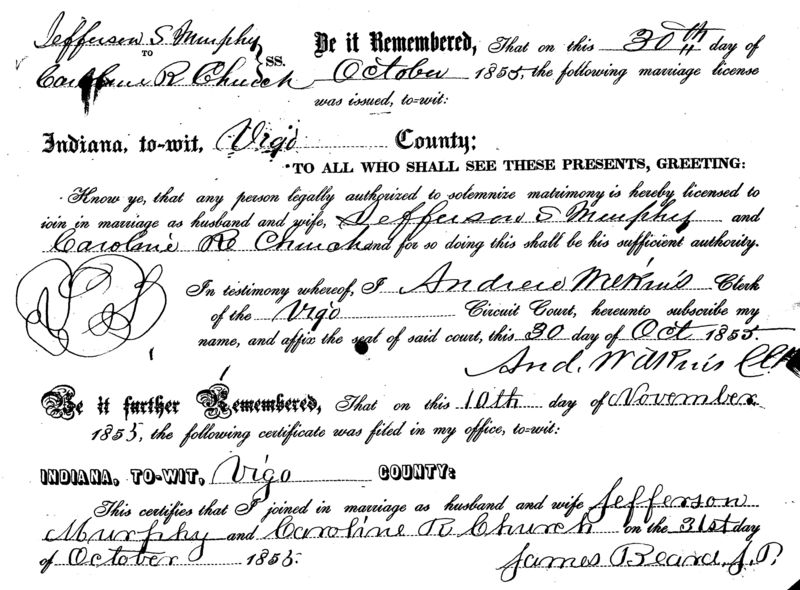 Jefferson S Murphy
TO
Caroline R Church
SS.
Be it Remembered, That on this 30th day of
October 1855, the following marriage license
was issued, to-wit:
Indiana, to-wit, Vigo County:
TO ALL WHO SHALL SEE THESE PRESENTS, GREETING:
Know ye, that any person legally authorized to solemnize matrimony is hereby licensed to
join in marriage as husband and wife, Jefferson S Murphy and
Caroline R Church and for so doing this shall be his sufficient authority.
In testimony whereof, I Andrew Wilkins Clerk
of the Vigo Circuit Court, hereunto subscribe my
name, and affix the seal of said court, this 30 day of Oct 1855.
And. Wilkins Clk
Be it further Remembered, That on this 10th day of November
1855, the following certificate was filed in my office, to-wit:
INDIANA, TO-WIT, Vigo COUNTY:
This certifies that I joined in marriage as husband and wife Jefferson
Murphy and Caroline R Church on the 31st day
of October 1855.
James Beard, J.P.